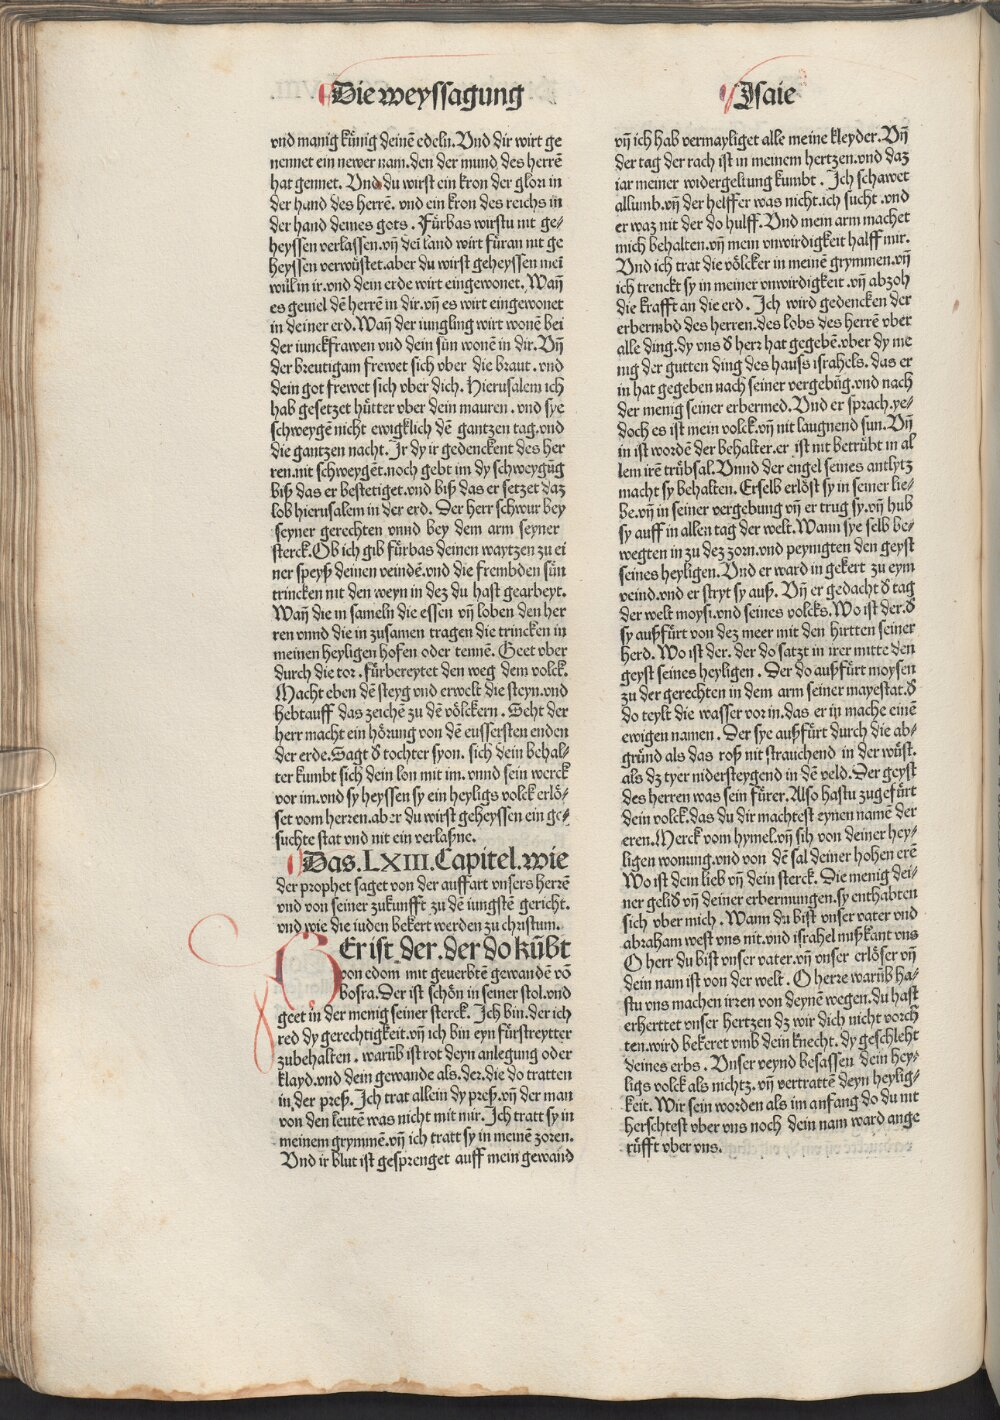 Die weyssagung
Jsaie
vnd manig kůnig deinē edeln. Vnd dir wirt ge
nennet ein newer nam. den der mund des herrē
hat gennet. Vnd du wirst ein kron der glori in
der hand des herrē. vnd ein kron des reichs in
der hand deines gots. Fu̇rbas wirstu nit ge⸗
heyssen verlassen. vn̄ dei land wirt fu̇ran nit ge
heyssen verwu̇stet. aber du wirst geheyssen mei
will in ir. vnd dein erde wirt eingewonet. Wan̄
es geuiel dē herrē in dir. vn̄ es wirt eingewonet
in deiner erd. Wan̄ der iungling wirt wonē bei
der iunckfrawen vnd dein su̇n wonē in dir. Vn̄
der breutigam frewet sich vber die braut. vnd
dein got frewet sich vber dich. Hierusalem ich
hab gesetzet hu̇tter vber dein mauren. vnd sye
schweygē nicht ewigklich dē gantzen tag. vnd
die gantzen nacht. Jr dy ir gedenckent des her
ren. nit schweygēt. noch gebt im dy schweygūg
biß das er bestetiget. vnd biß das er setzet daz
lob hierusalem in der erd. Der herr schwur bey
seyner gerechten vnnd bey dem arm seyner
sterck. Ob ich gib fu̇rbas deinen waytzen zu ei
ner speyß deinen veindē. vnd die frembden su̇n
trincken nit den weyn in dez du hast gearbeyt.
Wan̄ die in sameln die essen vn̄ loben den her
ren vnnd die in zusamen tragen die trincken in
meinen heyligen hofen oder tennē. Geet vber
durch die tor. fu̇rbereytet den weg dem volck.
Macht eben dē steyg vnd erwelt die steyn. vnd
hebtauff das zeichē zu dē vo̊lckern. Seht der
herr macht ein ho̊rung von dē eussersten enden
der erde. Sagt d' tochter syon. sich dein behal⸗
ter kumbt sich dein lon mit im. vnnd sein werck
vor im. vnd sy heyssen sy ein heyligs volck erlo̊⸗
set vom herren. aber du wirst geheyssen ein ge⸗
suchte stat vnd nit ein verlaßne.
Das. LXIII. Capitel. wie
der prophet saget von der auffart vnsers herrē
vnd von seiner zukunfft zu dē iungstē gericht.
vnd wie die iuden bekert werden zu christum.
WEr ist der. der do ku̇bt
von edom mit geuerbtē gewandē vō
bosra. Der ist scho̊n in seiner stol. vnd
geet in der menig seiner sterck. Jch bin. der ich
red dy gerechtigkeit. vn̄ ich bin eyn fu̇rstreytter
zubehalten. warūb ist rot deyn anlegung oder
klayd. vnd dein gewande als. der. die do tratten
in der preß. Jch trat allein dy preß. vn̄ der man
von den leutē was nicht mit mir. Jch tratt sy in
meinem grymmē. vn̄ ich tratt sy in meinē zoren.
Vnd ir blut ist gesprenget auff mein gewand
vn̄ ich hab vermayliget alle meine kleyder. Vn̄
der tag der rach ist in meinem hertzen. vnd daz
iar meiner widergeltung kumbt. Jch schawet
allumb. vn̄ der helffer was nicht. ich sucht. vnd
er waz nit der do hulff. Vnd mein arm machet
mich behalten. vn̄ mein vnwirdigkeit halff mir.
Vnd ich trat die vo̊lcker in meinē grymmen. vn̄
ich trenckt sy in meiner vnwirdigkeit. vn̄ abzoh
die krafft an die erd. Jch wird gedencken der
erbermbd des herren. des lobs des herrē vber
alle ding. dy vns d' herr hat gegebē. vber dy me
nig der gutten ding des hauss israhels. das er
in hat gegeben nach seiner vergebūg. vnd nach
der menig seiner erbermed. Vnd er sprach. ye⸗
doch es ist mein volck. vn̄ nit laugnend sun. Vn̄
in ist wordē der behalter. er ist nit betru̇bt in al
lem irē tru̇bsal. Vnnd der engel seines antlytz
macht sy behalten. Er selb erlo̊st sy in seiner lie⸗
be. vn̄ in seiner vergebung vn̄ er trug sy. vn̄ hub
sy auff in allen tag der welt. Wann sye selb be⸗
wegten in zu dez zorn. vnd peynigten den geyst
seines heyligen. Vnd er ward in gekert zu eym
veind. vnd er stryt sy auß. Vn̄ er gedacht d' tag
der welt moysi. vnd seines volcks. Wo ist der. d'
sy außfu̇rt von dez meer mit den hirtten seiner
herd. Wo ist der. der do satzt in irer mitte den
geyst seines heyligen. Der do außfu̇rt moysen
zu der gerechten in dem arm seiner mayestat. d'
do teylt die wasser vor in. das er in mache einē
ewigen namen. Der sye außfu̇rt durch die ab⸗
gru̇nd als das roß nit strauchend in der wu̇st.
als dz tyer nidersteygend in dē veld. Der geyst
des herren was sein fu̇rer. Also hastu zugefu̇rt
dein volck. das du dir machtest eynen namen der
eren. Merck vom hymel. vn̄ sih von deiner hey⸗
ligen wonung. vnd von dē sal deiner hohen erē
Wo ist dein lieb vn̄ dein sterck. Die menig dei⸗
ner gelid vn̄ deiner erbermungen. sy enthabten
sich vber mich. Wann du bist vnser vater vnd
abraham west vns nit. vnd israhel mißkant vns
O herr du bist vnser vater. vn̄ vnser erlo̊ser vn̄
dein nam ist von der welt. O herre warūb ha⸗
stu vns machen irren von deynē wegen. du hast
erherttet vnser hertzen dz wir dich nicht vorch
ten. wird bekeret vmb dein knecht. dy geschleht
deines erbs. Vnser veynd besassen dein hey⸗
ligs volck als nichtz. vn̄ vertrattē deyn heylig⸗
keit. Wir sein worden als im anfang do du nit
herschtest vber vns noch dein nam ward ange
ru̇fft vber vns.